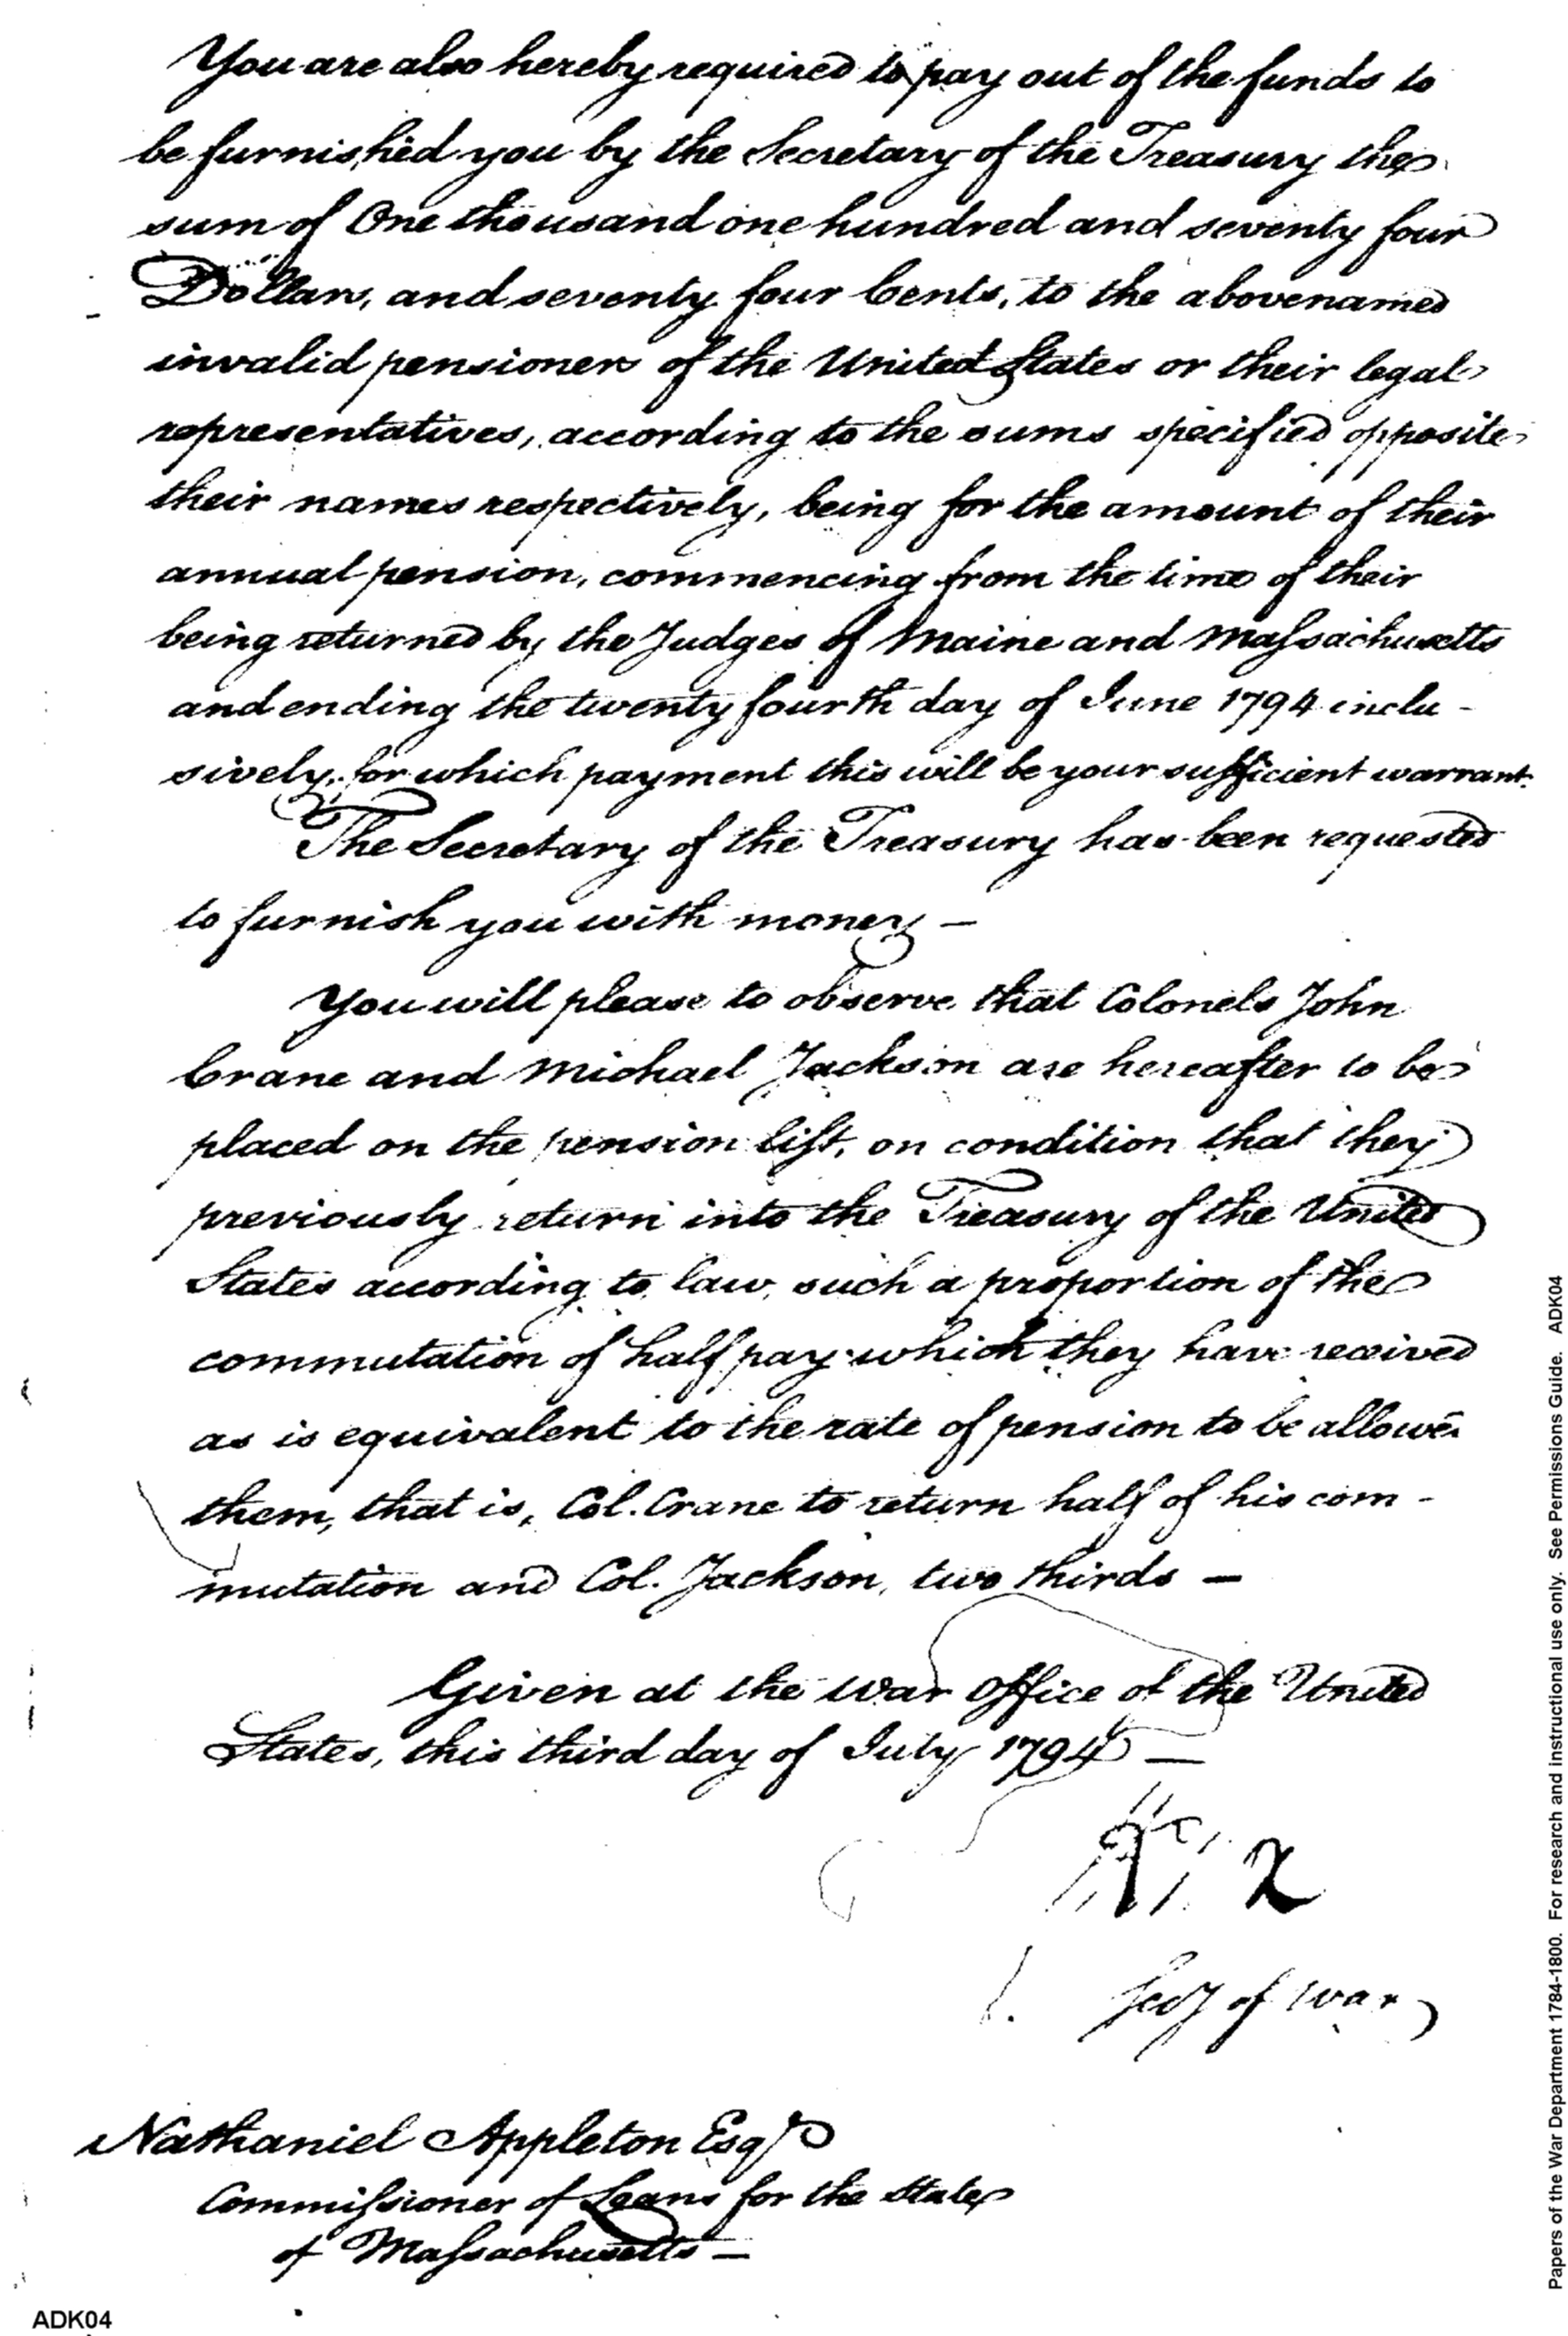 You are also hereby required to pay out of the funds to
be furnished you by the Secretary of the Treasury the
sum of One thousand one hundred and seventy four
Dollars, and seventy four Cents, to the abovenamed
invalid pensioners of the United States or their legal
representatives, according to the sums specified opposite
their names respectively, being for the amount of their
annual pension, commencing from the time of their
being returned by the Judges of Maine and Massachusetts
and ending the twenty fourth day of June 1794 inclu-
sively, for which payment this will be your sufficient warrant.
The Secretary of the Treasury has been requested
to furnish you with money —
You will please to observe that Colonels John
Crane and Michael Jackson are hereafter to be
placed on the pension list, on condition that they
previously return into the Treasury of the United
States according to law, such a proportion of the
commutation of half pay which they have received
as is equivalent to the rate of pension to be allowed
them, that is, Col. Crane to return half of his com-
mutation and Col. Jackson, two thirds —
Given at the War Office of the United
States, this third day of July 1794 —
Secy of War
Nathaniel Appleton Esqr
Commissioner of Loans for the State
of Massachusetts —
ADK04
Papers of the War Department 1784-1800. For research and instructional use only. See Permissions Guide. ADK04